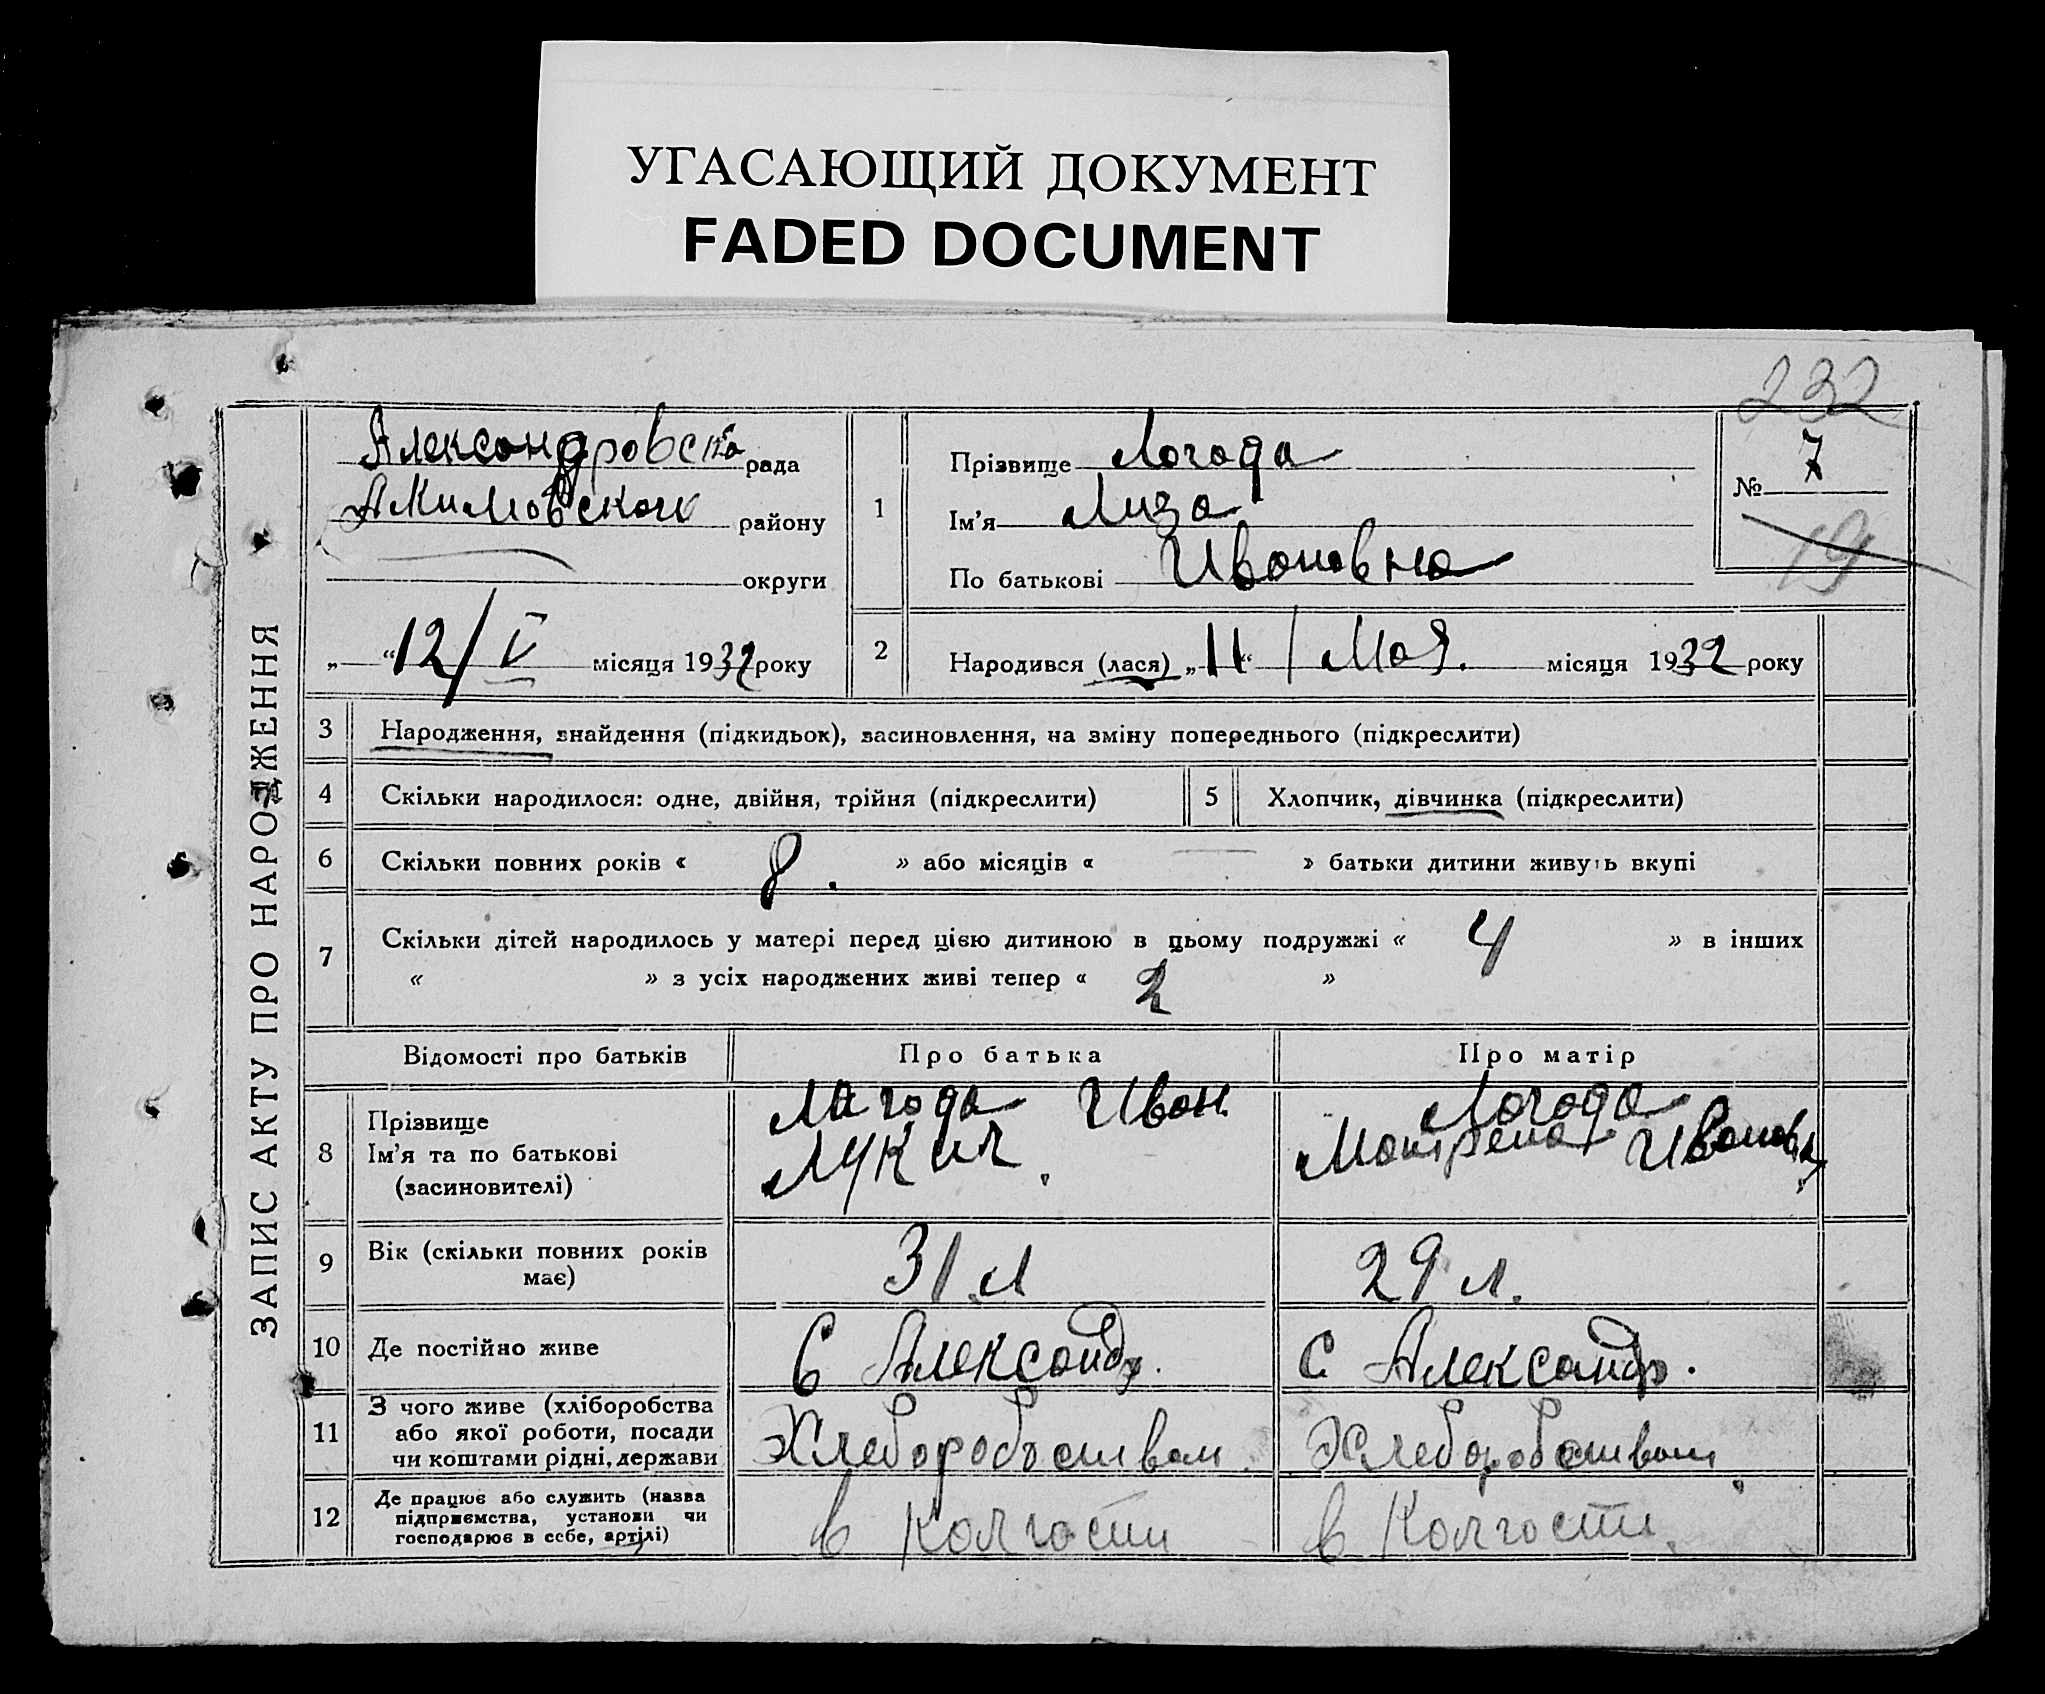 УГАСАЮЩИЙ ДОКУМЕНТ
FADED DOCUMENT
232
ЗАПИС АКТУ ПРО НАРОДЖЕННЯ
Александровска рада
Акимовского району
округи
„ “ 12/V місяця 1932 року
1
Прізвище Логода
Ім'я Лиза
По батькові Ивановна
№ 7
19
2
Народився (лася) „11“ Мая. місяця 1932 року
3 Народження, знайдення (підкидьок), засиновлення, на зміну попереднього (підкреслити)
4 Скільки народилося: одне, двійня, трійня (підкреслити) 5 Хлопчик, дівчинка (підкреслити)
6 Скільки повних років « 8. » або місяців « — » батьки дитини живуть вкупі
7 Скільки дітей народилось у матері перед цією дитиною в цьому подружжі « 4 » в інших
« » з усіх народжених живі тепер « 2 »
Відомості про батьків Про батька Про матір
8 Прізвище
Ім'я та по батькові
(засиновителі)
Лагода Иван
Лукич.
Логода
Матрена Ивановн
9 Вік (скільки повних років
має)
31 л
29 л.
10 Де постійно живе
С Александр.
С. Александр.
11 З чого живе (хліборобства
або якої роботи, посади
чи коштами рідні, держави
Хлеборобством.
Хлеборобством
12 Де працює або служить (назва
підприємства, установи чи
господарює в себе, артілі)
в колгости
в колгости.